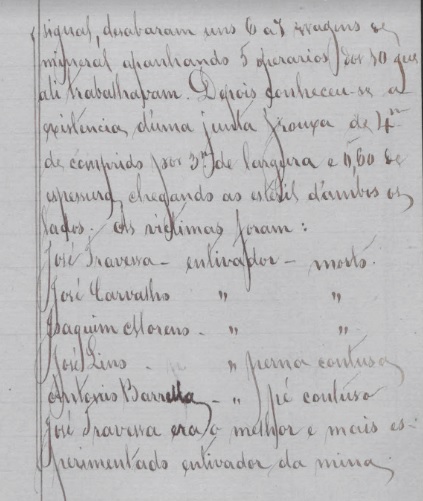 signal, desabaram uns 6 a 7 wagons de
mineral apanhando 5 operarios dos 10 que
ali trabalhavam. Depois conheceu-se a
existencia d'uma junta frouxa de 4m
de comprido por 3m de largura e 0,60 de
espessura, chegando ao esteril d'ambos os
lados. As victimas foram:
José Travessa - entivador - morto.
José Carvalho " "
Joaquim Moreno - " "
José Lino - " perna contusa
Antonio Barrella - " pé contuso
José Travessa era o melhor e mais es-
perimentado entivador da mina.